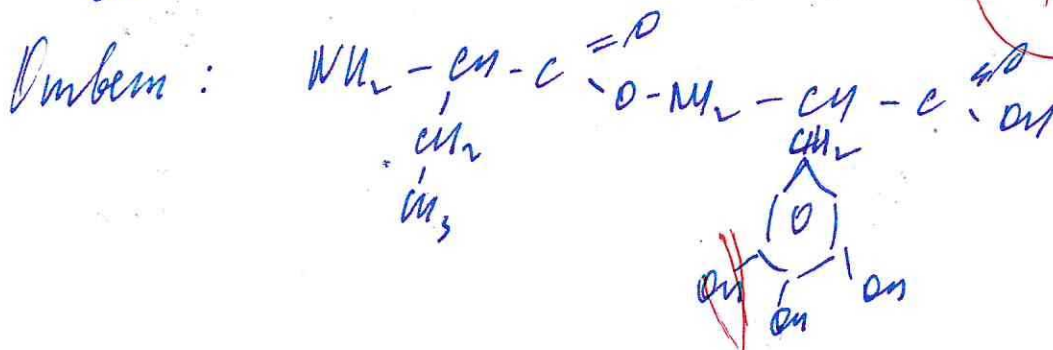 Ответ: NH₂ - CH - C =O
O-NH₂ - CH - C =O
OH
CH₂
CH₃
CH₂
O
OH
OH
OH